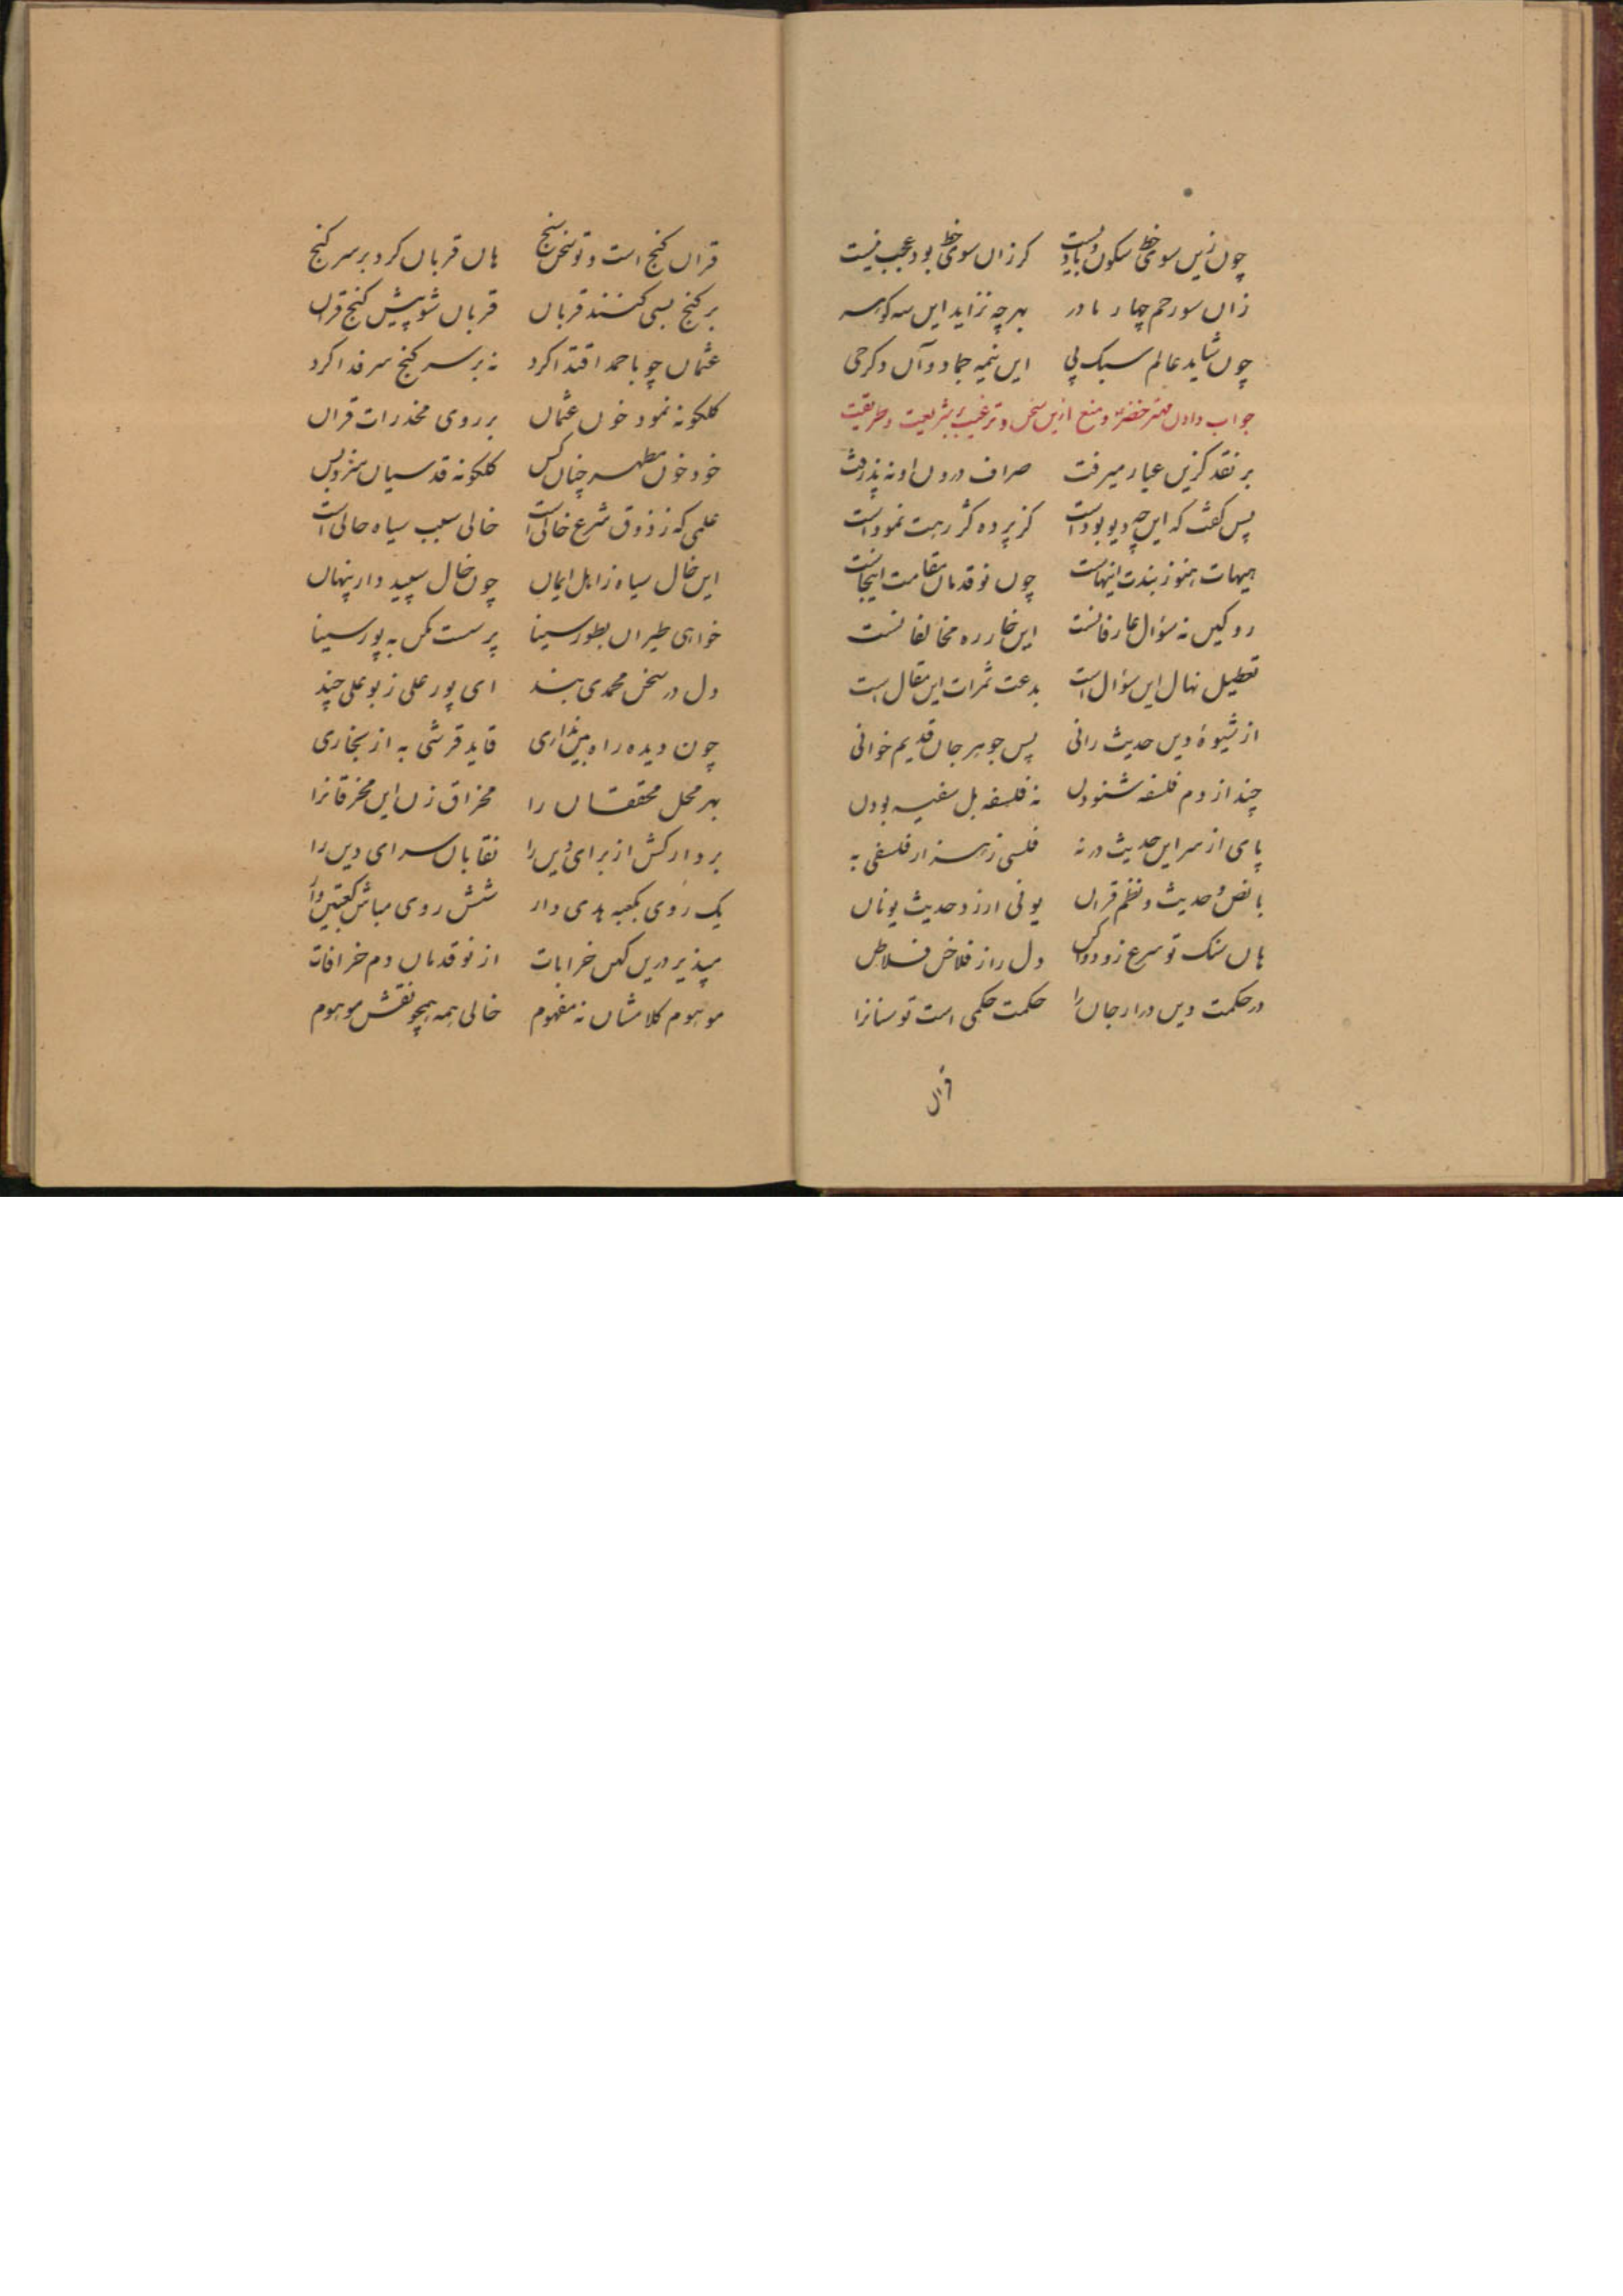 چون زین سوی خط سکون و بادیست کر زان سوی خط بود عجب نیست
زان سو رحم چهار مادر بهر چه نزاید این سه کوهر
چون شاید عالم سبک پی این نیمه جماد و آن دکر حی
جواب دادن مهتر خضر و منع ازین سخن و ترغیب بشریعت و طریقت
بر نقد کزین عیار میرفت صراف درون او نه پذرفت
پس کفت که این چه دیو بودست کز پرده کژ رهت نمودست
هیهات هنوز بندت اینهاست چون نوقدمان مقامت اینجاست
رو کین نه سؤال عارفانست این خار ره مخالفانست
تعطیل نهال این سؤال است بدعت ثمرات این مقال است
از شیوهٔ دین حدیث رانی پس جوهر جان قدیم خوانی
چند از دم فلسفه شنودن نه فلسفه بل سفیه بودن
پای از سر این حدیث در نه فلسی ز هزار فلسفی به
با نص حدیث و نظم قران یونی ارزد حدیث یونان
هان سنک تو سرع زو دوا کن دل را ز فلاخن فلاطن
در حکمت دین درار جان را حکمت حکمی است تو سنانرا
قران
قران کنج است و تو سخن سنج هان قربان کرد بر سر کنج
بر کنج بسی کنند قربان قربان شو پیش کنج قران
عثمان چو باحمد اقتدا کرد نه بر سر کنج سر فدا کرد
کلکونه نمود خون عثمان بر روی مخدرات قران
خود خون مطهر چنان کس کلکونه قدسیان سزد بس
علمی که ز ذوق شرع خالی است خالی سبب سیاه حالی است
این خال سیاه ز اهل ایمان چون خال سپید دار پنهان
خواهی طیران بطور سینا پر سست مکن به پور سینا
دل در سخن محمدی بند ای پور علی ز بوعلی چند
چون دیده راه بین نداری قاید قرشی به از بخاری
بهر محل محققان را مخراق زن این مخرقانرا
بر دار کش از برای دین را نقابان سرای دین را
یک روی بکعبه هدی دار شش روی مباش کعبتین وار
مپذیر درین کهن خرابات از نوقدمان دم خرافات
موهوم کلامشان نه مفهوم خالی همه همچو نقش موهوم